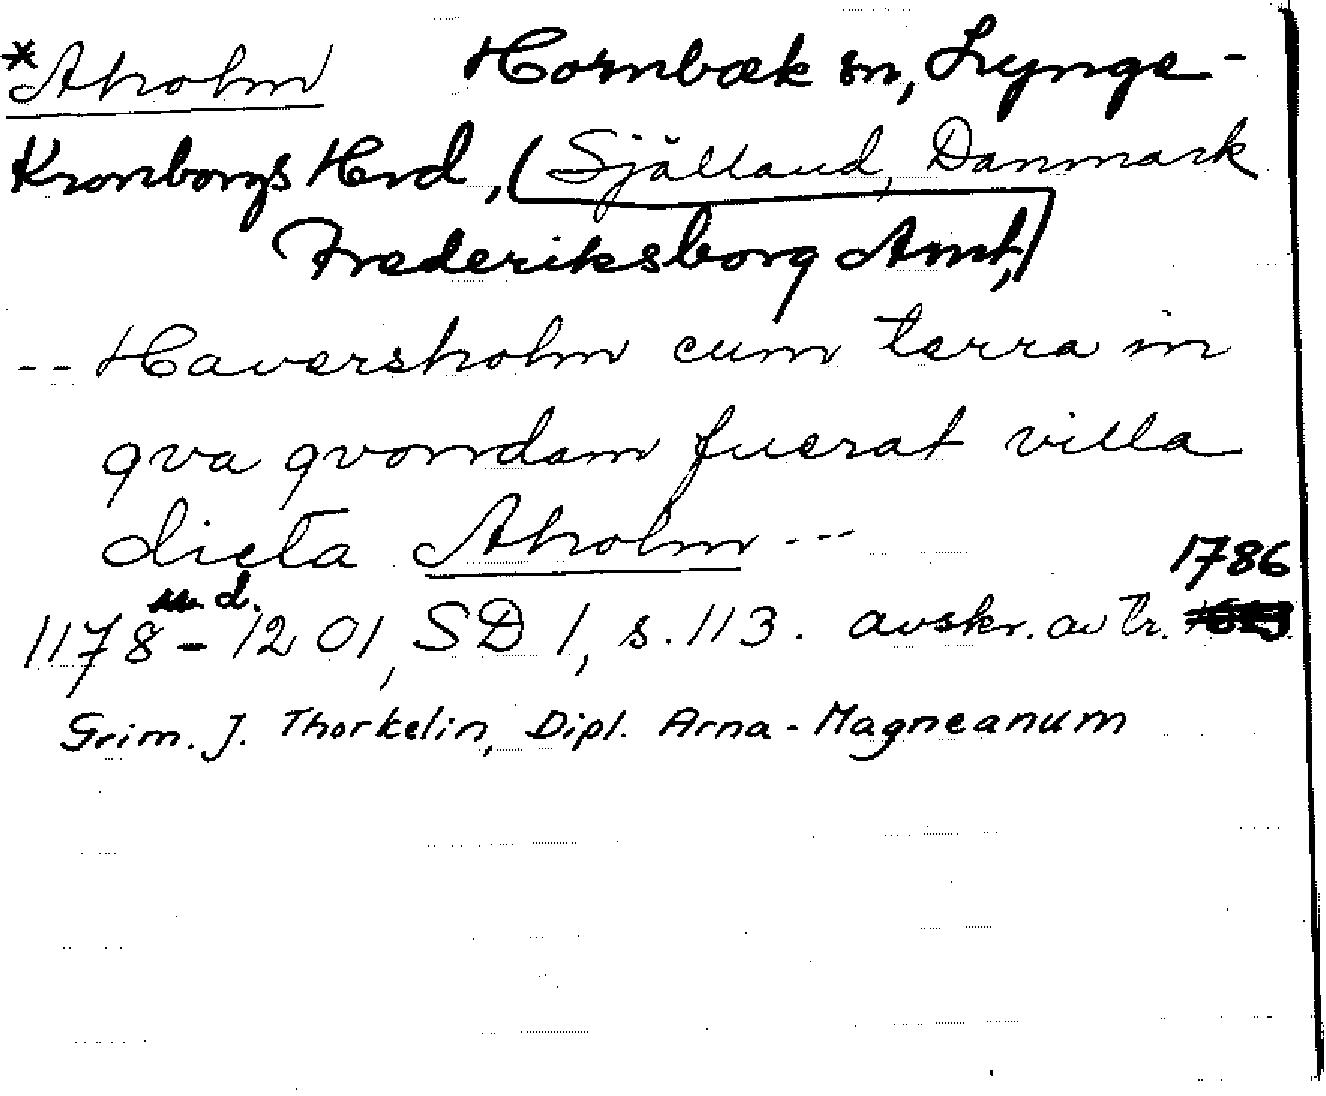 *Aholm Hornbæk sn, Lynge-
Kronborgs Hrd, (Själland, Danmark
Frederiksborg Amt,)
-- Haversholm cum terra in
qva qvondam fuerat villa
dicta Aholm ---
u. d. 1786
1178-1201, SD 1, s. 113. avskr. av tr.
Grim. J. Thorkelin, Dipl. Arna-Magneanum